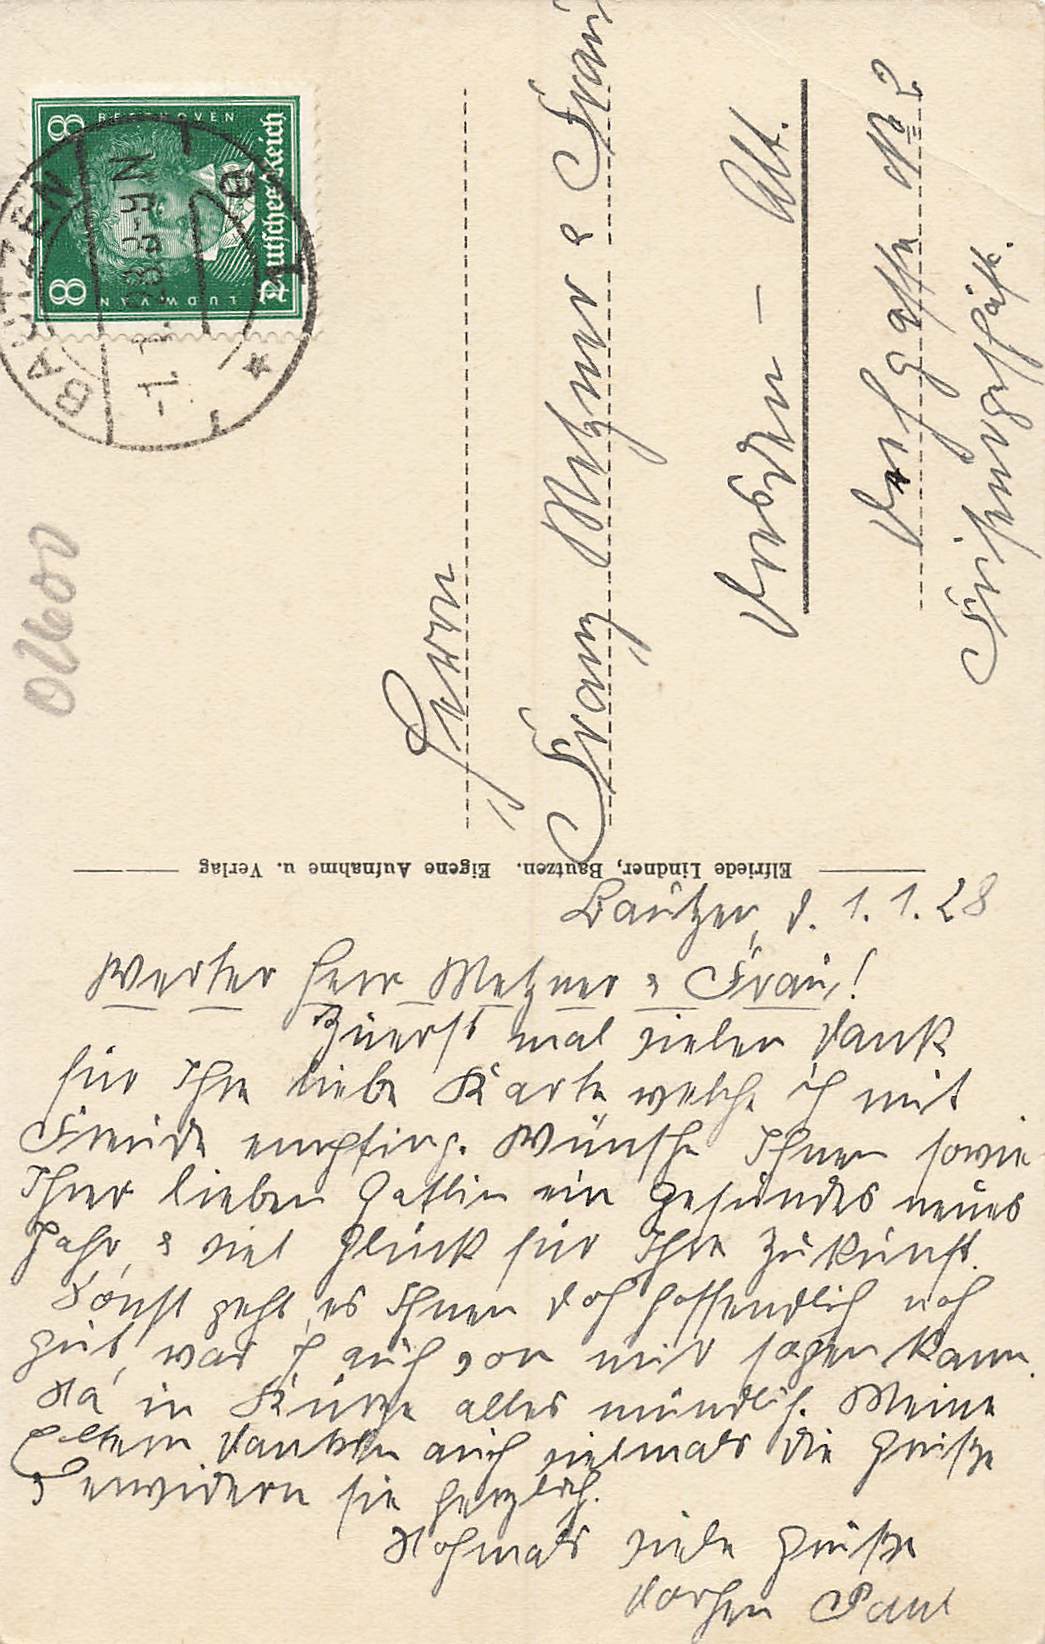 8 BEETHOVEN
8 LUDW. VAN
Deutsches Reich
BAUTZEN
1.1.28 8-9 N
Herrn
Franz Metzner & Frau
Dresden – Alt.
Fischgeschäft
Elfriede Lindner, Bautzen. Eigene Aufnahme u. Verlag
Bautzen, d. 1.1.28
Werter Herr Metzner & Frau!
Zuerst mal vielen Dank
für Ihre liebe Karte welche ich mit
Freude empfing. Wünsche Ihnen sowie
Ihrer lieben Gattin ein gesundes neues
Jahr, & viel Glück für Ihre Zukunft.
Sonst geht es Ihnen doch hoffendlich noch
gut, was ich auch von mir sagen kann.
Na in Kürze alles mündlich. Meine
Eltern danken auch vielmals die Grüße
& erwidern sie herzlich.
Nochmals viele Grüße
Paul